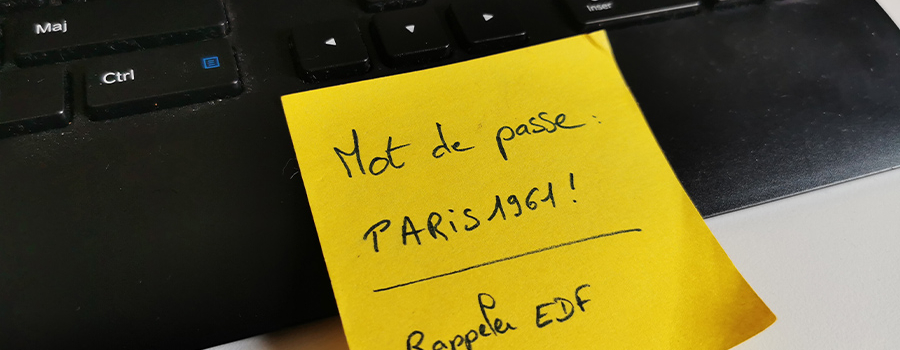 Maj
Inser
Ctrl
Mot de passe :
PARiS1961!
Rappeler EDF